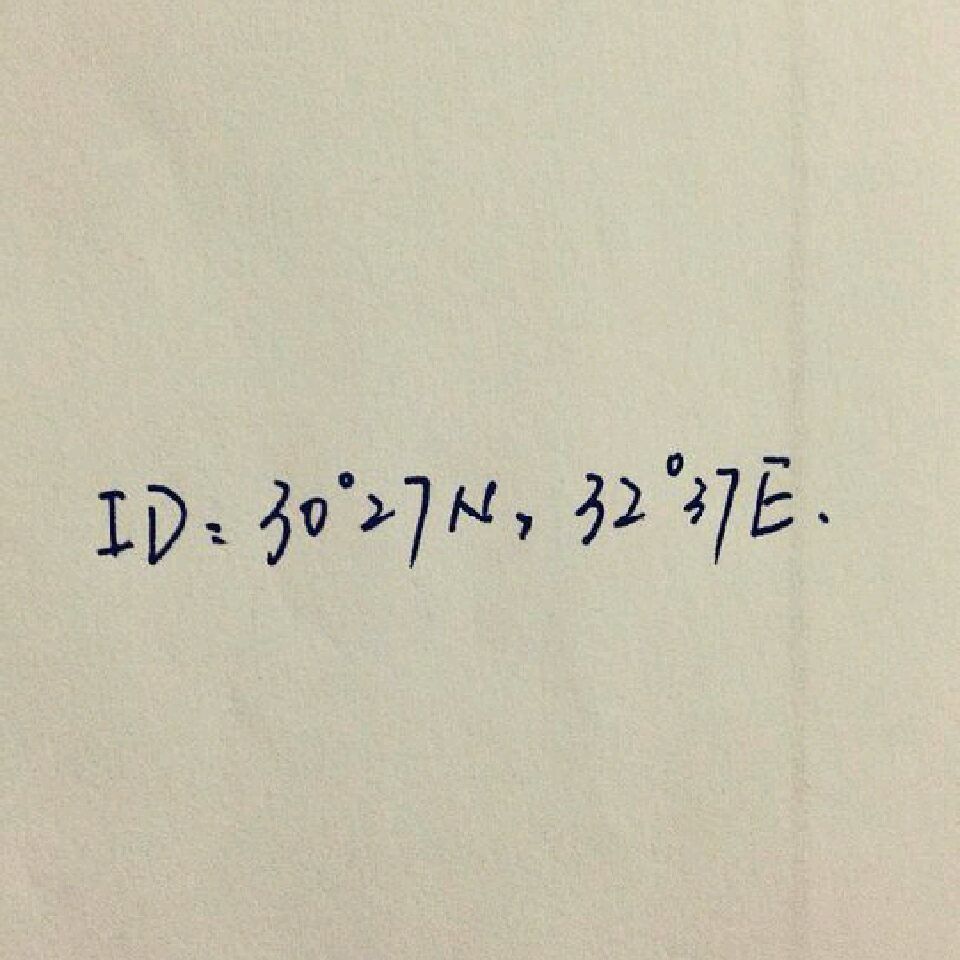 ID: 30°27N, 32°37E.